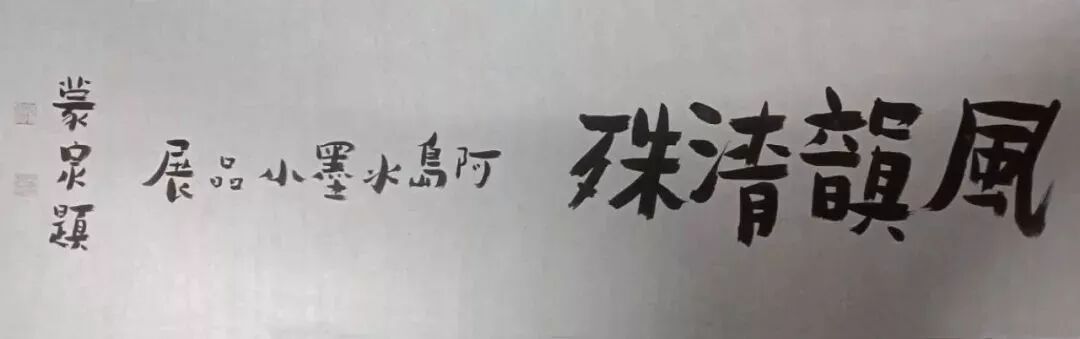 風韻清殊
阿島水墨小品展
蒙泉題